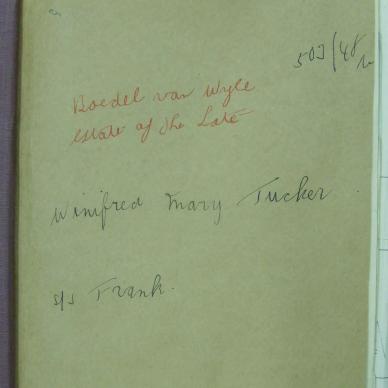 503/48
Boedel van Wyle
Estate of the Late
Winifred Mary Tucker
s/s Frank.